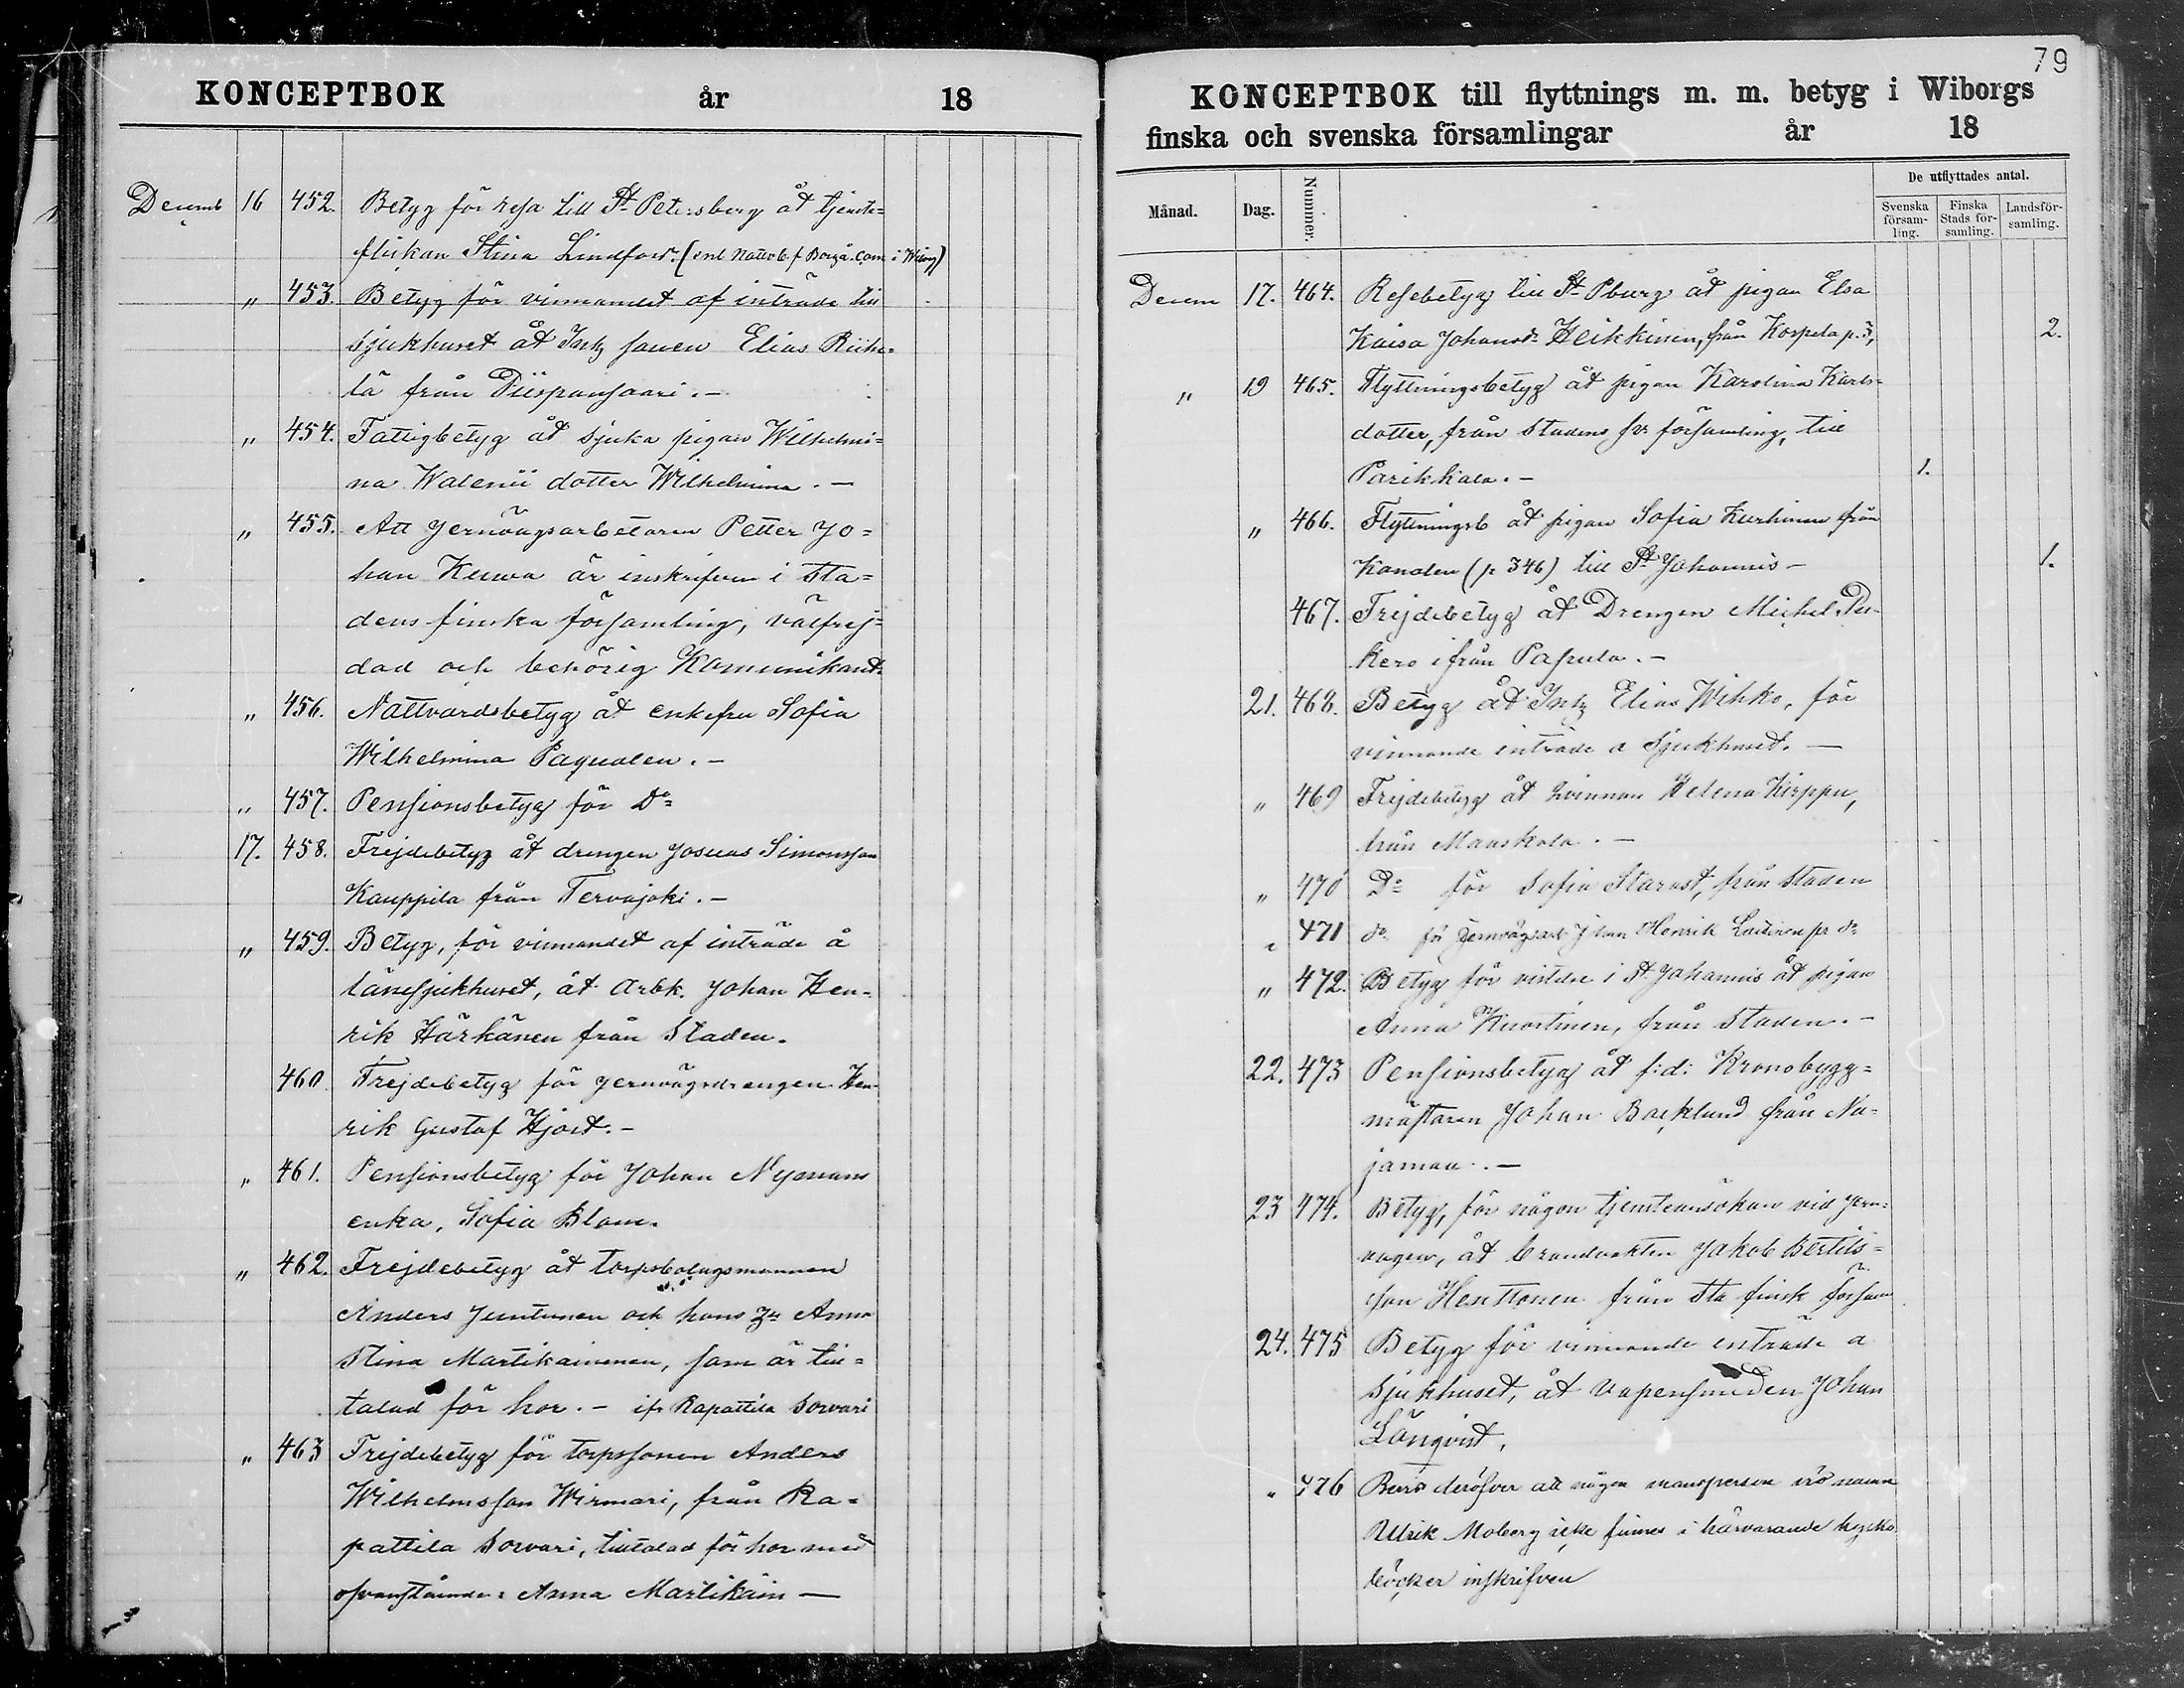 KONCEPTBOK år 18
Decemb 16 452. Betyg för resa till St Petersberg åt tjenste=
flickan Stina Lindfors. (enl Nattvb. f Borgå. Cam i Wiborg)
" 453. Betyg för vinnandet af inträde till
sjukhuset åt Inhs sonen Elias Riihe-
lä från Piispansaari. -
" 454. Fattigbetyg åt sjuka pigan Wilhelmi=
na Walenii dotter Wilhelmina. -
" 455. Att Jernvägsarbetaren Petter Jo=
han Kerwa är inskrifven i Sta=
dens finska församling, välfrej=
dad och behörig Kommunikant.
" 456. Nattvardsbetyg åt enkefru Sofia
Wilhelmina Paqualen. -
" 457. Pensionsbetyg för Do
17. 458. Frejdebetyg åt drengen Josuas Simonsson
Kauppila från Tervajoki. -
" 459. Betyg, för vinnandet af inträde å
länesjukhuset, åt Arbk. Johan Hen-
rik Härkänen från Staden.
460. Frejdebetyg för jernvägsdrengen Hen-
rik Gustaf Hjort. -
" 461. Pensionsbetyg för Johan Nymans
enka, Sofia Blom.
" 462. Frejdebetyg åt torpsbolagsmannen
Anders Juntunen och hans Anna
Stina Martikainen, som är till=
talad för hor. - ifr Rapattila Sorvari
" 463 Frejdebetyg för torpssonen Anders
Wilhelmsson Wirmari, från Ra=
pattila Sorvari, tilltalad för hor med
ofvanstående: Anna Martikain —
79
KONCEPTBOK till flyttnings m. m. betyg i Wiborgs
finska och svenska församlingar år 18
Månad. Dag. Nummer. De utflyttades antal.
Svenska församling. Finska Stads församling. Landsförsamling.
Decem 17. 464. Resebetyg till St Pburg åt pigan Elsa
Kaisa Johansdr Heikkinen, från Korpela p. 3, 2.
" 19 465. Flyttningsbetyg åt pigan Karolina Karls-
dotter, från Stadens sv. församling, till
Parikkala. - 1.
" 466. Flyttningsb åt pigan Sofia Kurhinen från
Kanalen (p 346) till St Johannis - 1.
467. Frejdebetyg åt Drengen Michel Pes-
kero ifrån Papula. -
21. 468. Betyg åt Inhs Elias Wihko, för
vinnande inträde a Sjukhuset. —
" 469 Frejdebetyg åt qvinnan Helena Kirppu,
från Manskola. —
" 470 Do för Sofia Starast, från Staden
" 471 do för Jernvägsarb Johan Henrik Laitinen fr do
" 472. Betyg för vistelse i St Johannis åt pigan
Anna Kuortinen, från Staden. -
22. 473 Pensionsbetyg åt f:d: Kronobygg=
mästaren Johan Backlund från Na=
jaman. —
23 474. Betyg, för någon tjensteansökan vid jern-
vägen, åt brandvakten Jakob Bertils=
son Henttonen från Sta finsk försam
24. 475 Betyg för vinnande inträde a
Sjukhuset, åt Vapensmeden Johan
Lönqvist,
" 476 Bevis deröfver att någon mansperson vid namn
Ulrik Moberg icke finnes i härvarande kyrko
böcker inskrifven